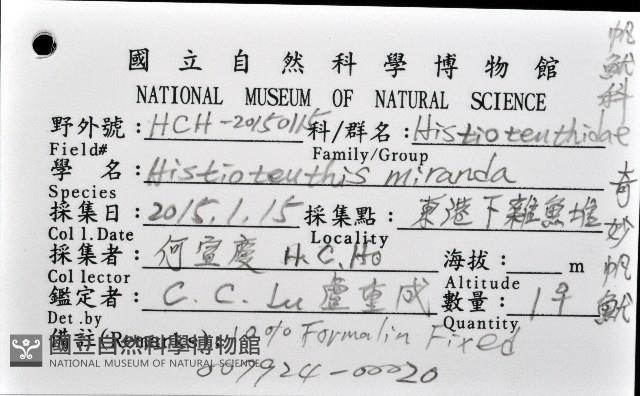 國立自然科學博物館
NATIONAL MUSEUM OF NATURAL SCIENCE
野外號：HCH-20150115 科/群名：Histioteuthidae
Field# Family/Group
學 名：Histioteuthis miranda
Species
採集日：2015.1.15 採集點：東港下雜魚堆
Coll.Date Locality
採集者：何宣慶 H.C.Ho 海拔：____m
Collector Altitude
鑑定者：C.C. Lu 盧重成 數量：1♀
Det.by Quantity
備註(Remarks)：10% Formalin Fixed
007924-00020
帆魷科 奇妙帆魷
國立自然科學博物館
NATIONAL MUSEUM OF NATURAL SCIENCE